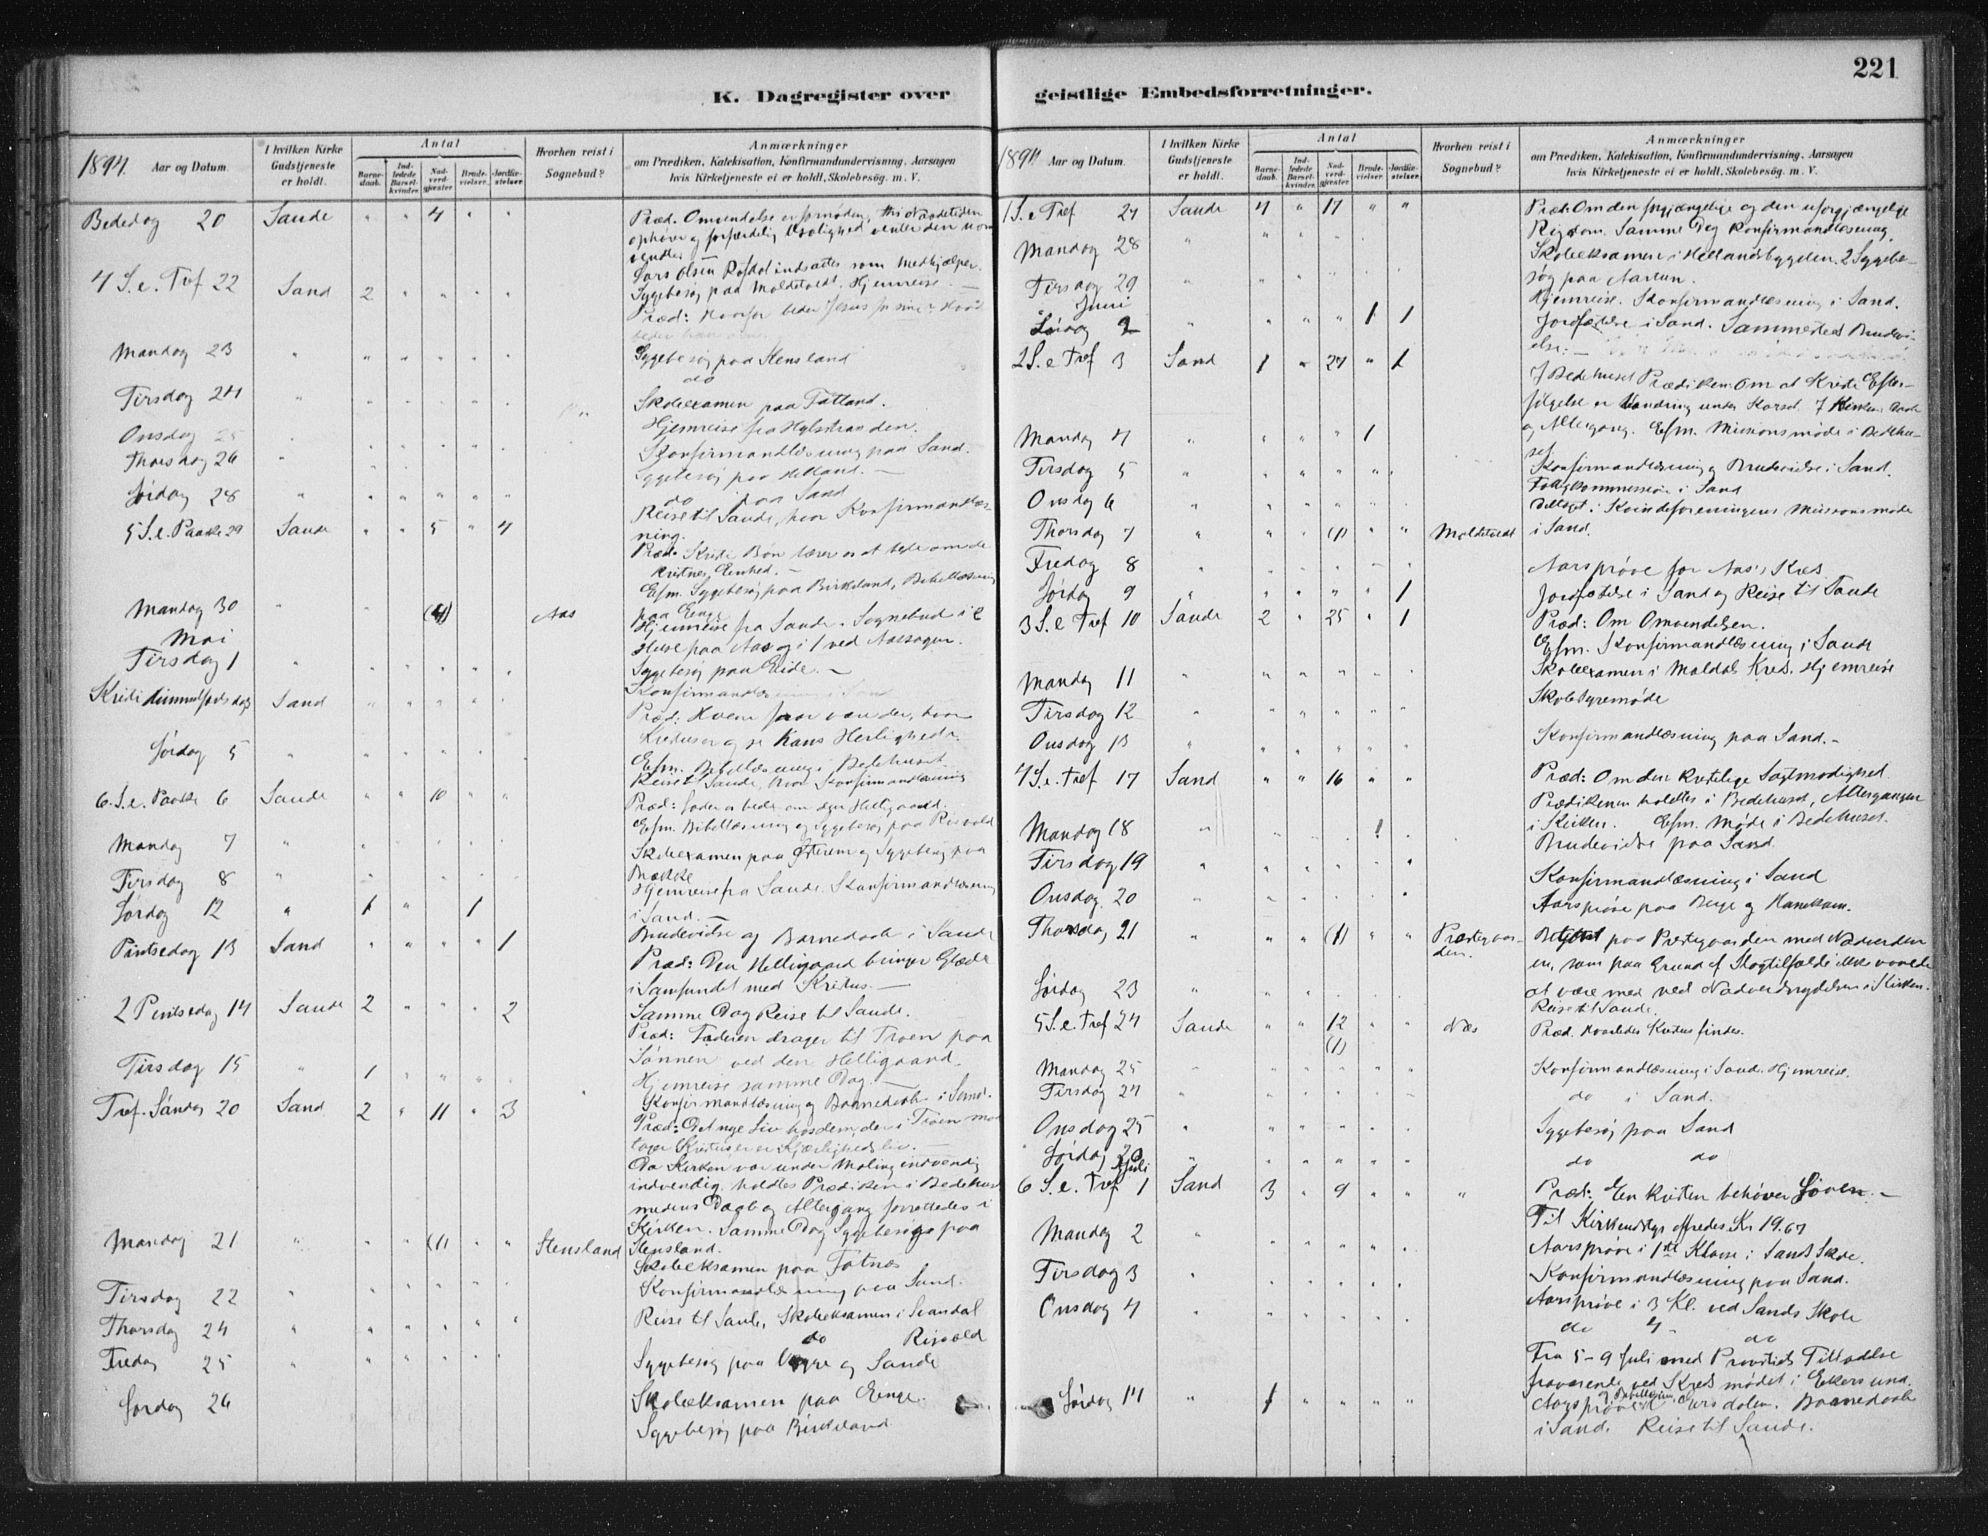 221
K. Dagregister over
geistlige Embedsforretninger.
1894. Aar og Datum
I hvilken Kirke Gudstjeneste er holdt.
Antal
Barne-daab.
Ind-ledede Barsel-kvinder.
Nad-verd-gjester
Brude-vielser.
Jordfæ-stelser
Hvorhen reist i Sognebud?
Anmærkninger
om Prædiken, Katekisation, Konfirmandundervisning, Aarsagen
hvis Kirketjeneste ei er holdt, Skolebesøg. m. V.
Bededag 20 Sande " " 4 " " Præd. Omvendelse er fornøden, thi Naadetiden
ophører og forfærdelig
4 S. e. Tref 22 Sand 2 " " " " Lars Olsen indsattes som Medhjælper.
Sygebesøg paa Moldetvedt. Hjemreise. —
Præd: Hvorfor beder Jesus
Mandag 23 " " " " " " Sygebesøg paa Stensland
do
Tirsdag 24 " " " " " " Skoleexamen paa Tatland.
Onsdag 25 " Hjemreise fra Hylsstranden.
Thorsdag 26 " Konfirmandlæsning paa Sand.
Sygebesøg paa Helland. —
Lørdag 28 " " " " " " do paa Sand
Reise til Sande, hvor Konfirmandlæs-
5 S. e. Paaske 29 Sande " " 5 " 4 ning.
Præd. Kristi Bøn lærer os at bede om de
kristnes Enhed. —
Efm. Sygebesøg paa Birkeland, Bibellæsning
Mandag 30 " (4) Aas paa Einge
Mai Hjemreise fra Sande. Sognebud i 2
Huse paa Aas og i 1 ved Aalsagen.
Tirsdag 1 " Sygebesøg paa Eide. —
Konfirmandlæsning i Sand
Kristi Himmelfartsdag Sand " " " " " Præd: Hvem faar være der, hvor
Kristus er og se Hans Herlighed.
Lørdag 5 " Efm. Bibellæsning i Bedehuset.
Reise til Sande, hvor Konfirmandlæsning
6. S. e. Paaske 6 Sande " " 10 " " Præd: Lader os bede om den Helligaand.
Efm. Bibellæsning og Sygebesøg paa Risvold
Mandag 7 " Skoleexamen paa Østerem og Sygebesøg paa
Mække
Tirsdag 8 " Hjemreise fra Sande. Konfirmandlæsning
i Sand. —
Lørdag 12 " 1 " 1 Brudevielse og Barnedaab i Sand
Pintsedag 13 Sand " " " " 1 Præd: Den Helligaand bringer Glæde
i Samfundet med Kristus. —
2 Pintsedag 14 Sande 2 " " " 2 Samme Dag Reise til Sande.
Præd: Faderen drager til Troen paa
Sønnen ved den Helligaand.
Tirsdag 15 " 1 " " " Hjemreise samme Dag —
Konfirmandlæsning og Barnedaab i Sand.
Tref. Søndag 20 Sand 2 " 11 " 3 Præd: Det nye Liv hos dem, der i Troen mod-
tager Kristus er et Kjærlighedsliv. —
Da Kirken var under Maling indvendig
indvendig holdtes Prædiken i Bedehuset
medens Daab og Altergang forrettedes i
Kirken. Samme Dag Sygebesøg paa
Mandag 21 " " " (1) " " Stensland Stensland.
Skoleeksamen paa Fatnes
Tirsdag 22 " Konfirmandlæsning paa Sand.
Thorsdag 24 " Reise til Sande, Skoleeksamen i Svandal
do Risvold
Fredag 25 " Sygebesøg paa Vaage og Sande
Lørdag 26 Skoleeksamen paa Einge.
Sygebesøg paa Birkeland
1894 Aar og Datum.
I hvilken Kirke Gudstjeneste er holdt.
Antal
Barne-daab.
Ind-ledede Barsel-kvinder
Nad-verd-gjester
Brude-vielser
Jordfæ-stelser.
Hvorhen reist i Sognebud?
Anmærkninger
om Prædiken, Katekisation, Konfirmandundervisning, Aarsagen
hvis Kirketjeneste ei er holdt, Skolebesøg. m. V.
1 S. e Tref 27 Sande 4 " 17 " " Præd: Om den forgjængelige og den uforgjængelige
Rigdom. Samme Dag Konfirmandlæsning.
Mandag 28 " Skoleeksamen i Hellandsbygden. 2 Sygebe-
søg paa
Tirsdag 29 " Hjemreise. Konfirmandlæsning i Sand.
Juni
Lørdag 2 " " " " 1 1 Jordfæstelse i Sand. Sammesteds Brudevi-
else. —
2 S. e Tref 3 Sand 1 " 27 " 1 I Bedehuset Prædiken: Om at Kristi Efter-
følgelse er Vandring under Korset. I Kirken Daab
og Altergang. Efm. Missionsmøde i Bedehu-
set
Mandag 4 " " " " 1 Konfirmandlæsning og Brudevielse i Sand.
Tirsdag 5 " i Sand
Onsdag 6 " Deltaget i Kvindeforeningens Missionsmøde
Thorsdag 7 " " " (1) " " Moldetvedt i Sand.
Fredag 8 " Aarsprøve for Aas's Kres
Lørdag 9 " " " " " 1 Jordfæstelse i Sand og Reise til Sande
3 S. e Tref 10 Sande 2 " 25 " 1 Præd: Om Omvendelsen.
Efm. Konfirmandlæsning i Sande
Mandag 11 " Skoleexamen i Maldal Kres. Hjemreise
Tirsdag 12 " Skolestyremøde
Onsdag 13 " Konfirmandlæsning paa Sand. —
4 S. e. Tref 17 Sand " " 16 " " Præd: Om den kristelige Sagtmodighed.
Prædikenen holdtes i Bedehuset, Altergangen
i Kirken. Efm. Møde i Bedehuset.
Mandag 18 " 1 Brudevielse paa Sand.
Tirsdag 19 " Konfirmandlæsning i Sand
Onsdag 20 " Aarsprøve paa Berge og Hanekam.
Thorsdag 21 " " " (1) " " Præstegaar-den. Betjent paa Præstegaarden med Nadverden
en, som paa Grund af Slagtilfælde ikke vovede
Lørdag 23 at være med ved Nadverdnydelsen i Kirken.
Reise til Sande.
5 S. e. Tref 24 Sande " " 12 " " Næs Præd. Hvorledes Kristus findes.
(1)
Mandag 25 Konfirmandlæsning i Sande. Hjemreise.
Tirsdag 24 do i Sand.
Onsdag 25 " Sygebesøg paa Sand
Lørdag " do do
Juli
6 S. e. Tref 1 Sand 3 " 9 " " " Præd: En kristen behøver Loven. —
Til Kirkens ofredes Kr 19.67
Mandag 2 " Aarsprøve i 1ste Klasse i Sands Skole.
Tirsdag 3 " Konfirmandlæsning paa Sand.
Onsdag 4 " Aarsprøve i 3 Kl. ved Sands Skole
do 4 - do
Fra 5-9 Juli med Provstens Tilladelse
fraværende ved Kredsmødet i Ekersund.
Lørdag 14 " 1 " " " " Aarsprøve og Bibellæsn. i Barnedaab
i Sand. Reise til Sande.